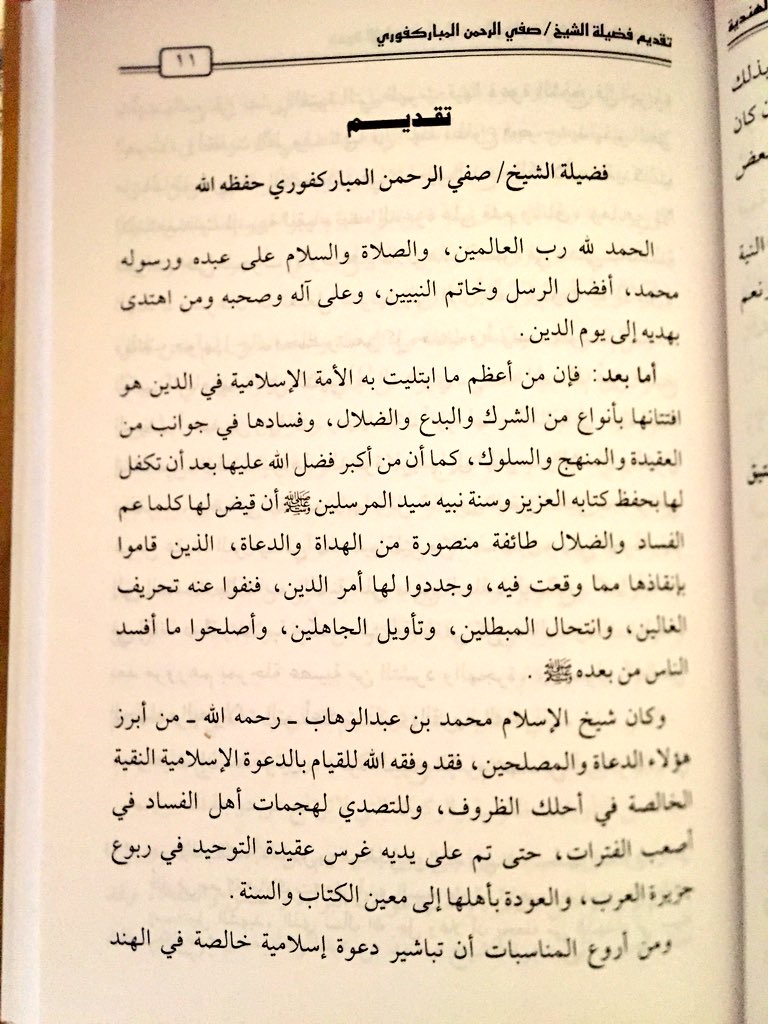 تقديم فضيلة الشيخ/صفي الرحمن المباركفوري
١١
تقديـــم
فضيلة الشيخ/ صفي الرحمن المباركفوري حفظه الله
الحمد لله رب العالمين، والصلاة والسلام على عبده ورسوله
محمد، أفضل الرسل وخاتم النبيين، وعلى آله وصحبه ومن اهتدى
بهديه إلى يوم الدين.
أما بعد: فإن من أعظم ما ابتليت به الأمة الإسلامية في الدين هو
افتتانها بأنواع من الشرك والبدع والضلال، وفسادها في جوانب من
العقيدة والمنهج والسلوك، كما أن من أكبر فضل الله عليها بعد أن تكفل
لها بحفظ كتابه العزيز وسنة نبيه سيد المرسلين ﷺ أن قيض لها كلما عم
الفساد والضلال طائفة منصورة من الهداة والدعاة، الذين قاموا
بإنقاذها مما وقعت فيه، وجددوا لها أمر الدين، فنفوا عنه تحريف
الغالين، وانتحال المبطلين، وتأويل الجاهلين، وأصلحوا ما أفسد
الناس من بعده ﷺ .
وكان شيخ الإسلام محمد بن عبدالوهاب ـ رحمه الله ـ من أبرز
هؤلاء الدعاة والمصلحين، فقد وفقه الله للقيام بالدعوة الإسلامية النقية
الخالصة في أحلك الظروف، وللتصدي لهجمات أهل الفساد في
أصعب الفترات، حتى تم على يديه غرس عقيدة التوحيد في ربوع
جزيرة العرب، والعودة بأهلها إلى معين الكتاب والسنة.
ومن أروع المناسبات أن تباشير دعوة إسلامية خالصة في الهند